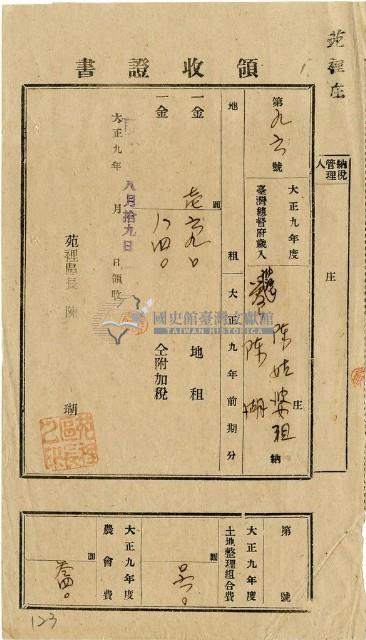 苑裡庄
領收證書
納稅管理人
庄
第九六號
大正九年度
臺灣總督府歲入
陳姑婆祖
陳瑚
庄
納
地租
大正九年前期分
一金
圓
地租
一金
圓
仝附加稅
大正九年八月拾九日領收
苑裡區長 陳瑚
國史館臺灣文獻館
TAIWAN HISTORICA
第 號
大正九年度
土地整理組合費
圓
大正九年度
農會費
圓
123